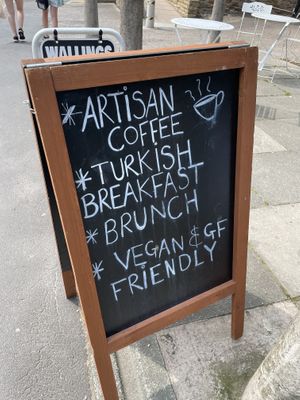 WALLINGS
*ARTISAN
COFFEE
*TURKISH
BREAKFAST
*BRUNCH
*VEGAN & GF
FRIENDLY